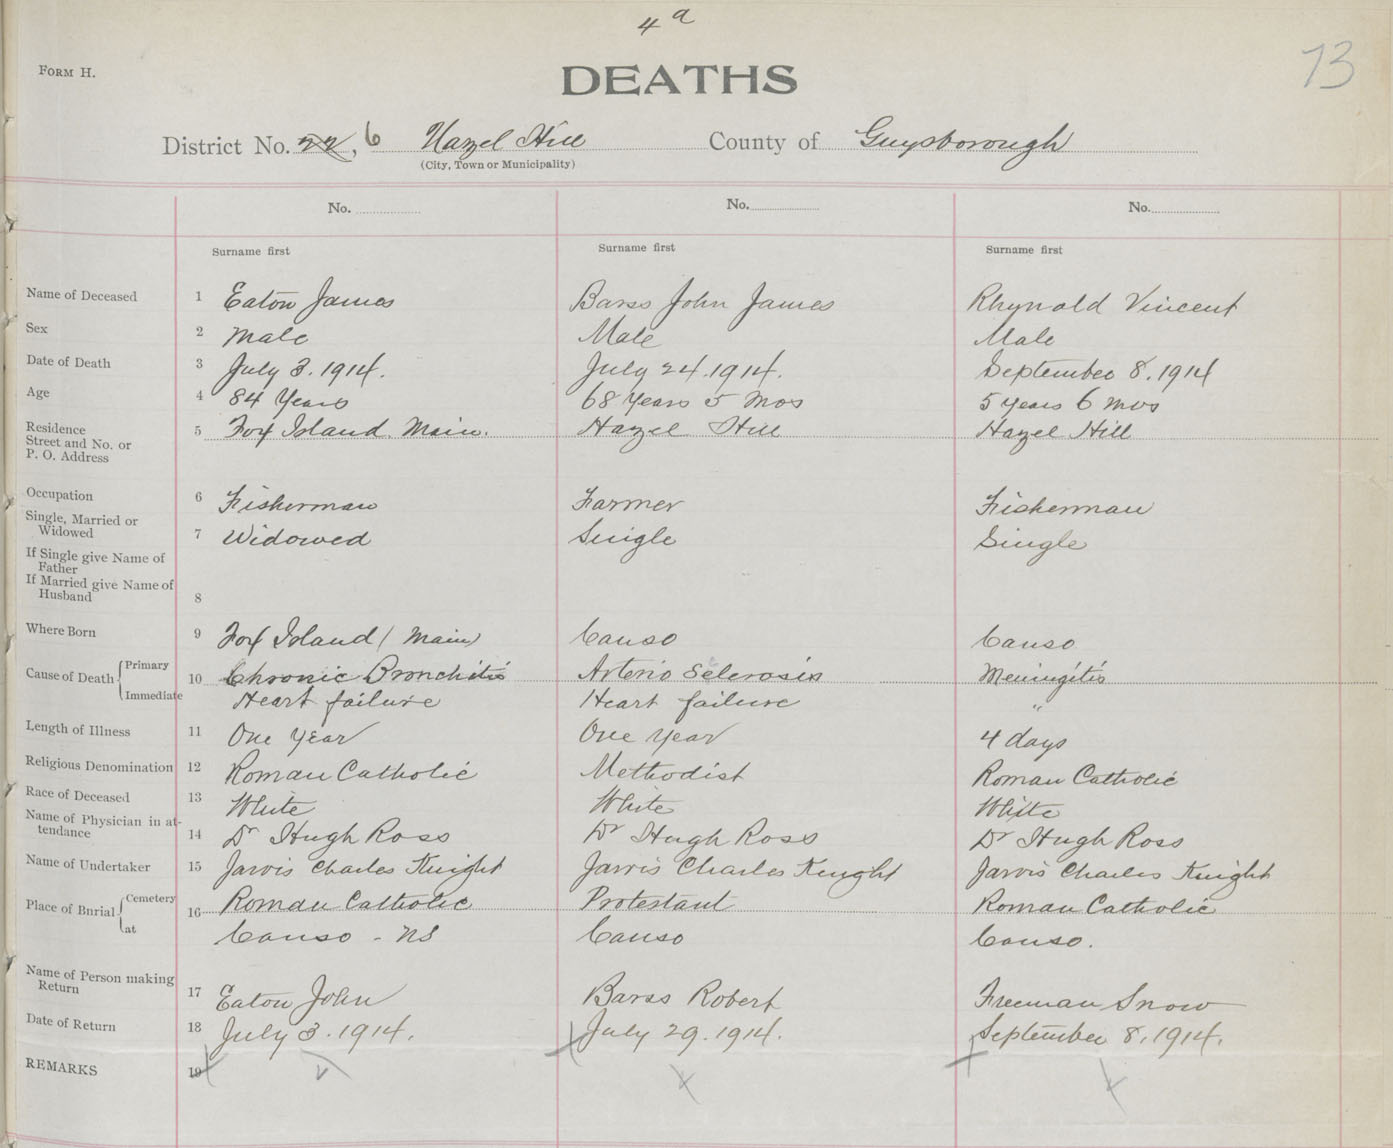 4 a
73
FORM H.
DEATHS
District No. 22, 6 Hazel Hill County of Guysborough
(City, Town or Municipality)
No. No. No.
Surname first Surname first Surname first
Name of Deceased 1 Eaton James Barss John James Rhynold Vincent
Sex 2 Male Male Male
Date of Death 3 July 3. 1914. July 24. 1914. September 8. 1914
Age 4 84 Years 68 Years 5 Mos 5 years 6 mos
Residence
Street and No. or 5 Fox Island Main. Hazel Hill Hazel Hill
P. O. Address
Occupation 6 Fisherman Farmer Fisherman
Single, Married or
Widowed 7 Widowed Single Single
If Single give Name of
Father
If Married give Name of
Husband 8
Where Born 9 Fox Island (Main) Canso Canso
Cause of Death Primary 10 Chronic Bronchitis Arterio Sclerosis Meningitis
Immediate Heart failure Heart failure "
Length of Illness 11 One Year One Year 4 days
Religious Denomination 12 Roman Catholic Methodist Roman Catholic
Race of Deceased 13 White White White
Name of Physician in at-
tendance 14 Dr Hugh Ross Dr Hugh Ross Dr Hugh Ross
Name of Undertaker 15 Jarvis Charles Knight Jarvis Charles Knight Jarvis Charles Knight
Place of Burial Cemetery 16 Roman Catholic Protestant Roman Catholic
at Canso - NS Canso Canso.
Name of Person making
Return 17 Eaton John Barss Robert Freeman Snow
Date of Return 18 July 3. 1914. July 29. 1914. September 8. 1914.
REMARKS 19